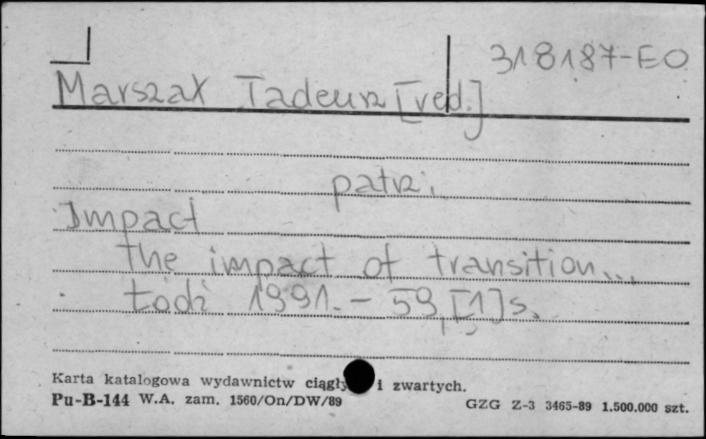 318187-EO
Marszał Tadeusz [red.]
patrz:
Impact
The impact of transition...
Łódź 1991. - 59, [1] s.
Karta katalogowa wydawnictw ciągły i zwartych.
Pu-B-144 W.A. zam. 1560/On/DW/89
GZG Z-3 3465-89 1.500.000 szt.